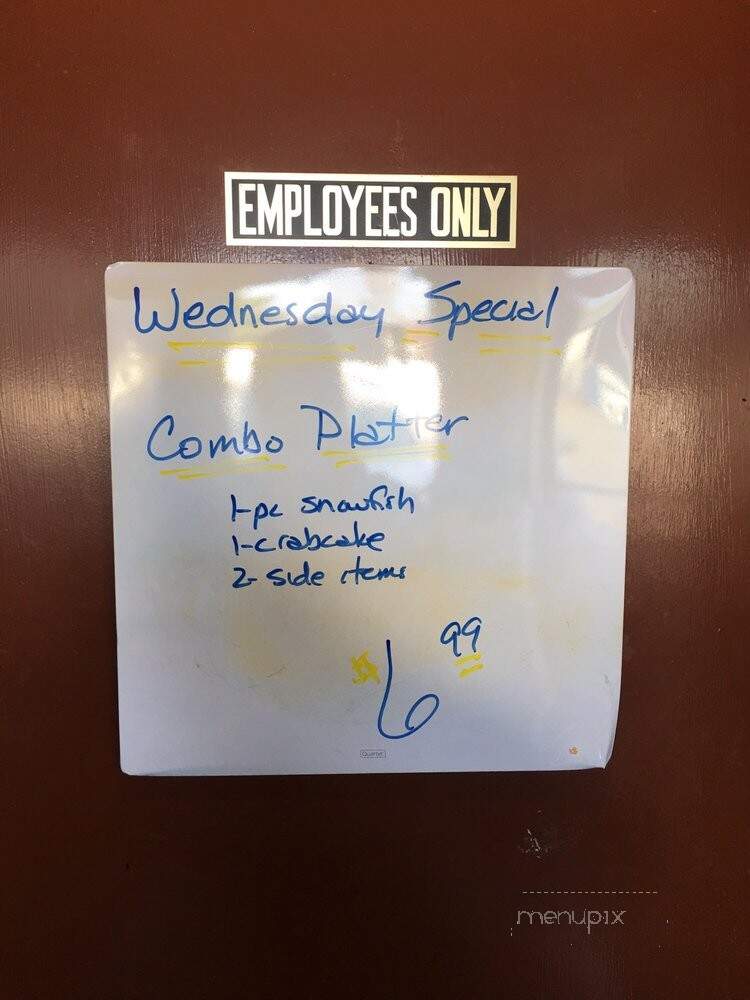 EMPLOYEES ONLY
Wednesday Special
Combo Platter
1-pc snowfish
1-crabcake
2-side items
$6 99
Quartet
menupix